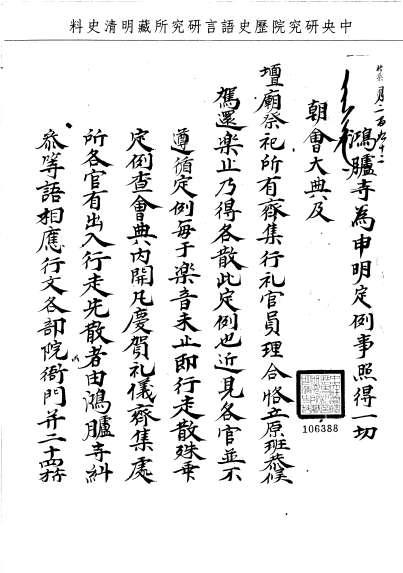 中央研究院歷史語言研究所藏明清史料
月二百九十二
鴻臚寺為申明定例事照得一切
朝會大典及
壇廟祭祀所有齊集行礼官員理合恪立原班恭候
駕還樂止乃得各散此定例也近見各官並不
遵循定例每于樂音未止即行走散殊乖
定例查會典內開凡慶賀礼儀齊集處
所各官有出入行走先散者由鴻臚寺糾
叅等語相應行文各部院衙門并二十四
106388